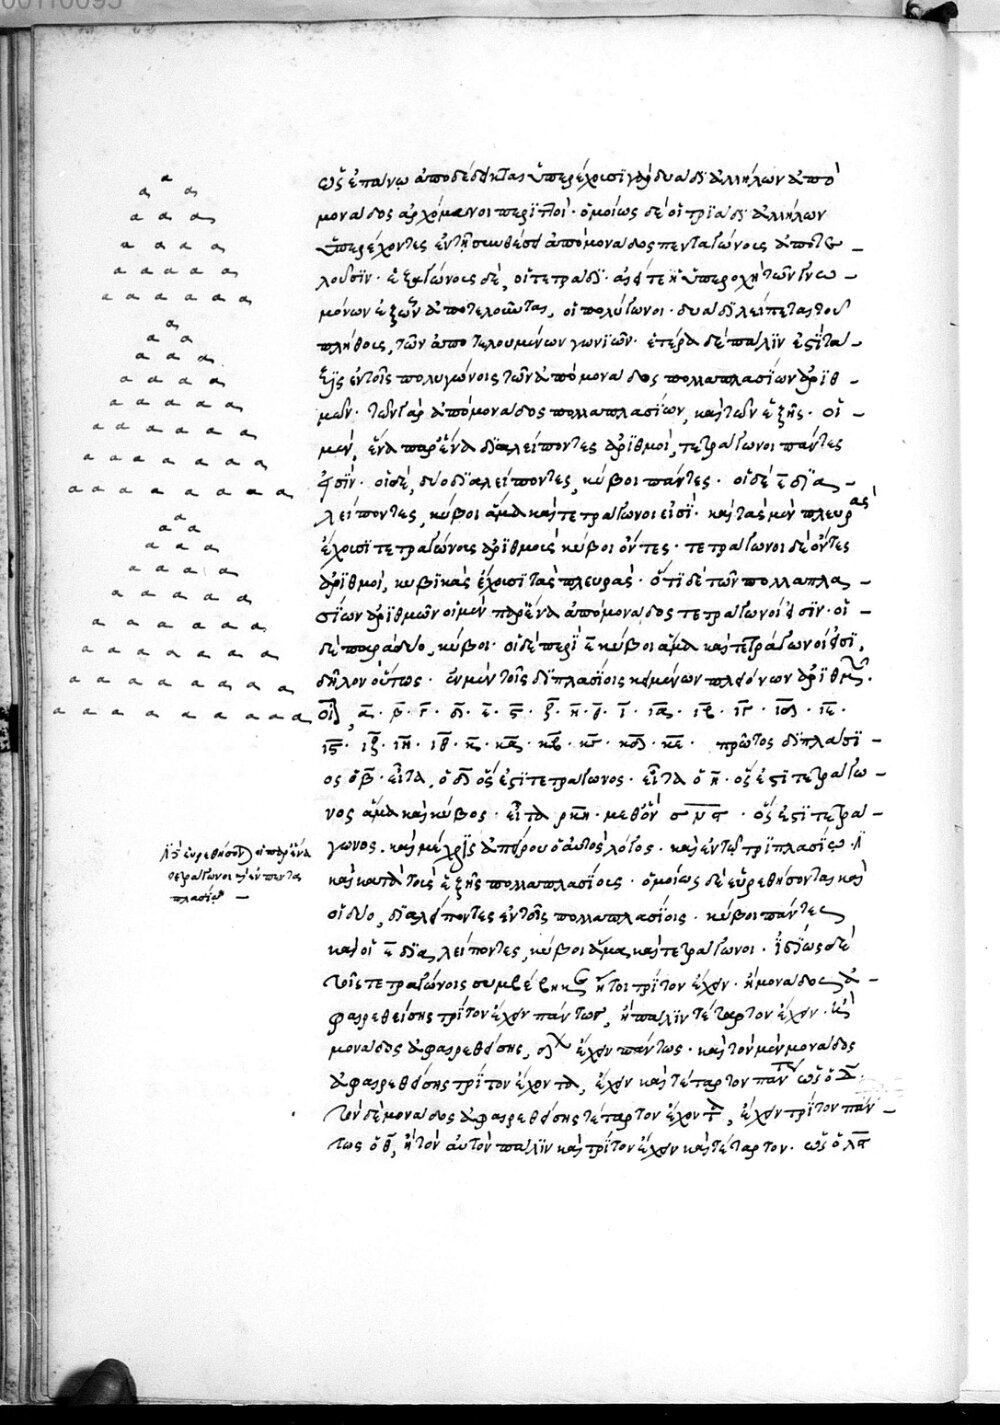 α
α α
α α α
α α α α
α α α α α
α α α α α α
α
α α
α α α
α α α α
α α α α α
α α α α α α
α α α α α α α
α α α α α α α α
α
α α
α α α
α α α α
α α α α α
α α α α α α
α α α α α α α
α α α α α α α α
ὡς ἐπάνω ἀποδέδεικται ὑπερέχουσι γὰρ δυάδι ἀλλήλων ἀπὸ
μονάδος ἀρχόμενοι περιττοί· ὁμοίως δὲ οἱ τριάδι ἀλλήλων
ὑπερέχοντες ἐν τῇ συνθέσει ἀπὸ μονάδος πενταγώνους ἀποτε
λοῦσιν· ἑξαγώνους δὲ, οἱ τετράδι· ἀεί τε ἡ ὑπεροχὴ τῶν γνω
μόνων ἐξ ὧν ἀποτελοῦνται, οἱ πολύγωνοι· δυάδι λείπεται τοῦ
πλήθους, τῶν ἀποτελουμένων γωνιῶν· ἑτέρα δὲ πάλιν ἐστὶ τά
ξις ἐν τοῖς πολυγώνοις τῶν ἀπὸ μονάδος πολλαπλασίων ἀριθ
μῶν· τῶν γὰρ ἀπὸ μονάδος πολλαπλασίων, καὶ τῶν ἑξῆς· οἱ
μὲν, ἕνα παρ' ἕνα διαλείποντες ἀριθμοὶ, τετράγωνοι πάντες
εἰσίν· οἱ δὲ, δύο διαλείποντες, κύβοι πάντες· οἱ δὲ ε̄ δια
λείποντες, κύβοι ἅμα καὶ τετράγωνοι εἰσὶ· καὶ τὰς μὲν πλευρὰς
ἔχουσι τετραγώνους ἀριθμοὺς κύβοι ὄντες· τετράγωνοι δὲ ὄντες
ἀριθμοὶ, κυβικὰς ἔχουσι τὰς πλευράς· ὅτι δὲ τῶν πολλαπλα
σίων ἀριθμῶν οἱ μὲν παρ' ἕνα ἀπὸ μονάδος τετράγωνοί εἰσιν· οἱ
δὲ παρὰ δύο, κύβοι· οἱ δὲ περὶ ε̄ κύβοι ἅμα καὶ τετράγωνοι εἰσὶ,
δῆλον οὕτως· ἐν μὲν τοῖς διπλασίοις κειμένων πλειόνων ἀριθμῶν·
οἷον, ᾱ· β̄· γ̄· δ̄· ε̄· ς̄· ζ̄· η̄· θ̄· ῑ· ῑᾱ· ῑβ̄· ῑγ̄· ῑδ̄· ῑε̄·
ῑς̄· ῑζ̄· ῑη̄· ῑθ̄· κ̄· κ̄ᾱ· κ̄β̄· κ̄γ̄· κ̄δ̄· κ̄ε̄· πρῶτος διπλάσι
ος ὁ β̄· εἶτα, ὁ δ̄ ὅς ἐστι τετράγωνος· εἶτα ὁ η̄· ὅς ἐστι τετράγω
νος ἅμα καὶ κύβος· εἶτα ρ̄κ̄η̄· μεθ' ὃν σ̄ν̄ς̄· ὅς ἐστι τετρά
γωνος· καὶ μέχρις ἀπείρου ὁ αὐτὸς λόγος· καὶ ἐν τῷ τριπλασίῳ·
καὶ κατὰ τοὺς ἑξῆς πολλαπλασίους· ὁμοίως δὲ εὑρεθήσονται καὶ
οἱ δύο, διαλείποντες ἐν τοῖς πολλαπλασίοις· κύβοι πάντες
καὶ οἱ ε̄ διαλείποντες, κύβοι ἅμα καὶ τετράγωνοι· ἰδίως δὲ
τοῖς τετραγώνοις συμβέβηκεν ἤτοι τρίτον ἔχειν· ἢ μονάδος ἀ
φαιρεθείσης τρίτον ἔχειν πάντως, ἢ πάλιν τέταρτον ἔχειν· ἢ
μονάδος ἀφαιρεθείσης, δ̄ον ἔχειν πάντως· καὶ τὸν μὲν μονάδος
ἀφαιρεθείσης τρίτον ἔχοντα, ἔχειν καὶ τέταρτον πάντως ὡς ὁ δ̄·
τὸν δὲ μονάδος ἀφαιρεθείσης τέταρτον ἔχοντα, ἔχειν τρίτον πάν
τως ὁ θ̄, ἢ τὸν αὐτὸν πάλιν καὶ τρίτον ἔχειν καὶ τέταρτον· ὡς ὁ λ̄ς̄
εὑρεθήσονται οἱ παρ' ἕνα
τετράγωνοι καὶ ἐν πεντα
πλασίῳ